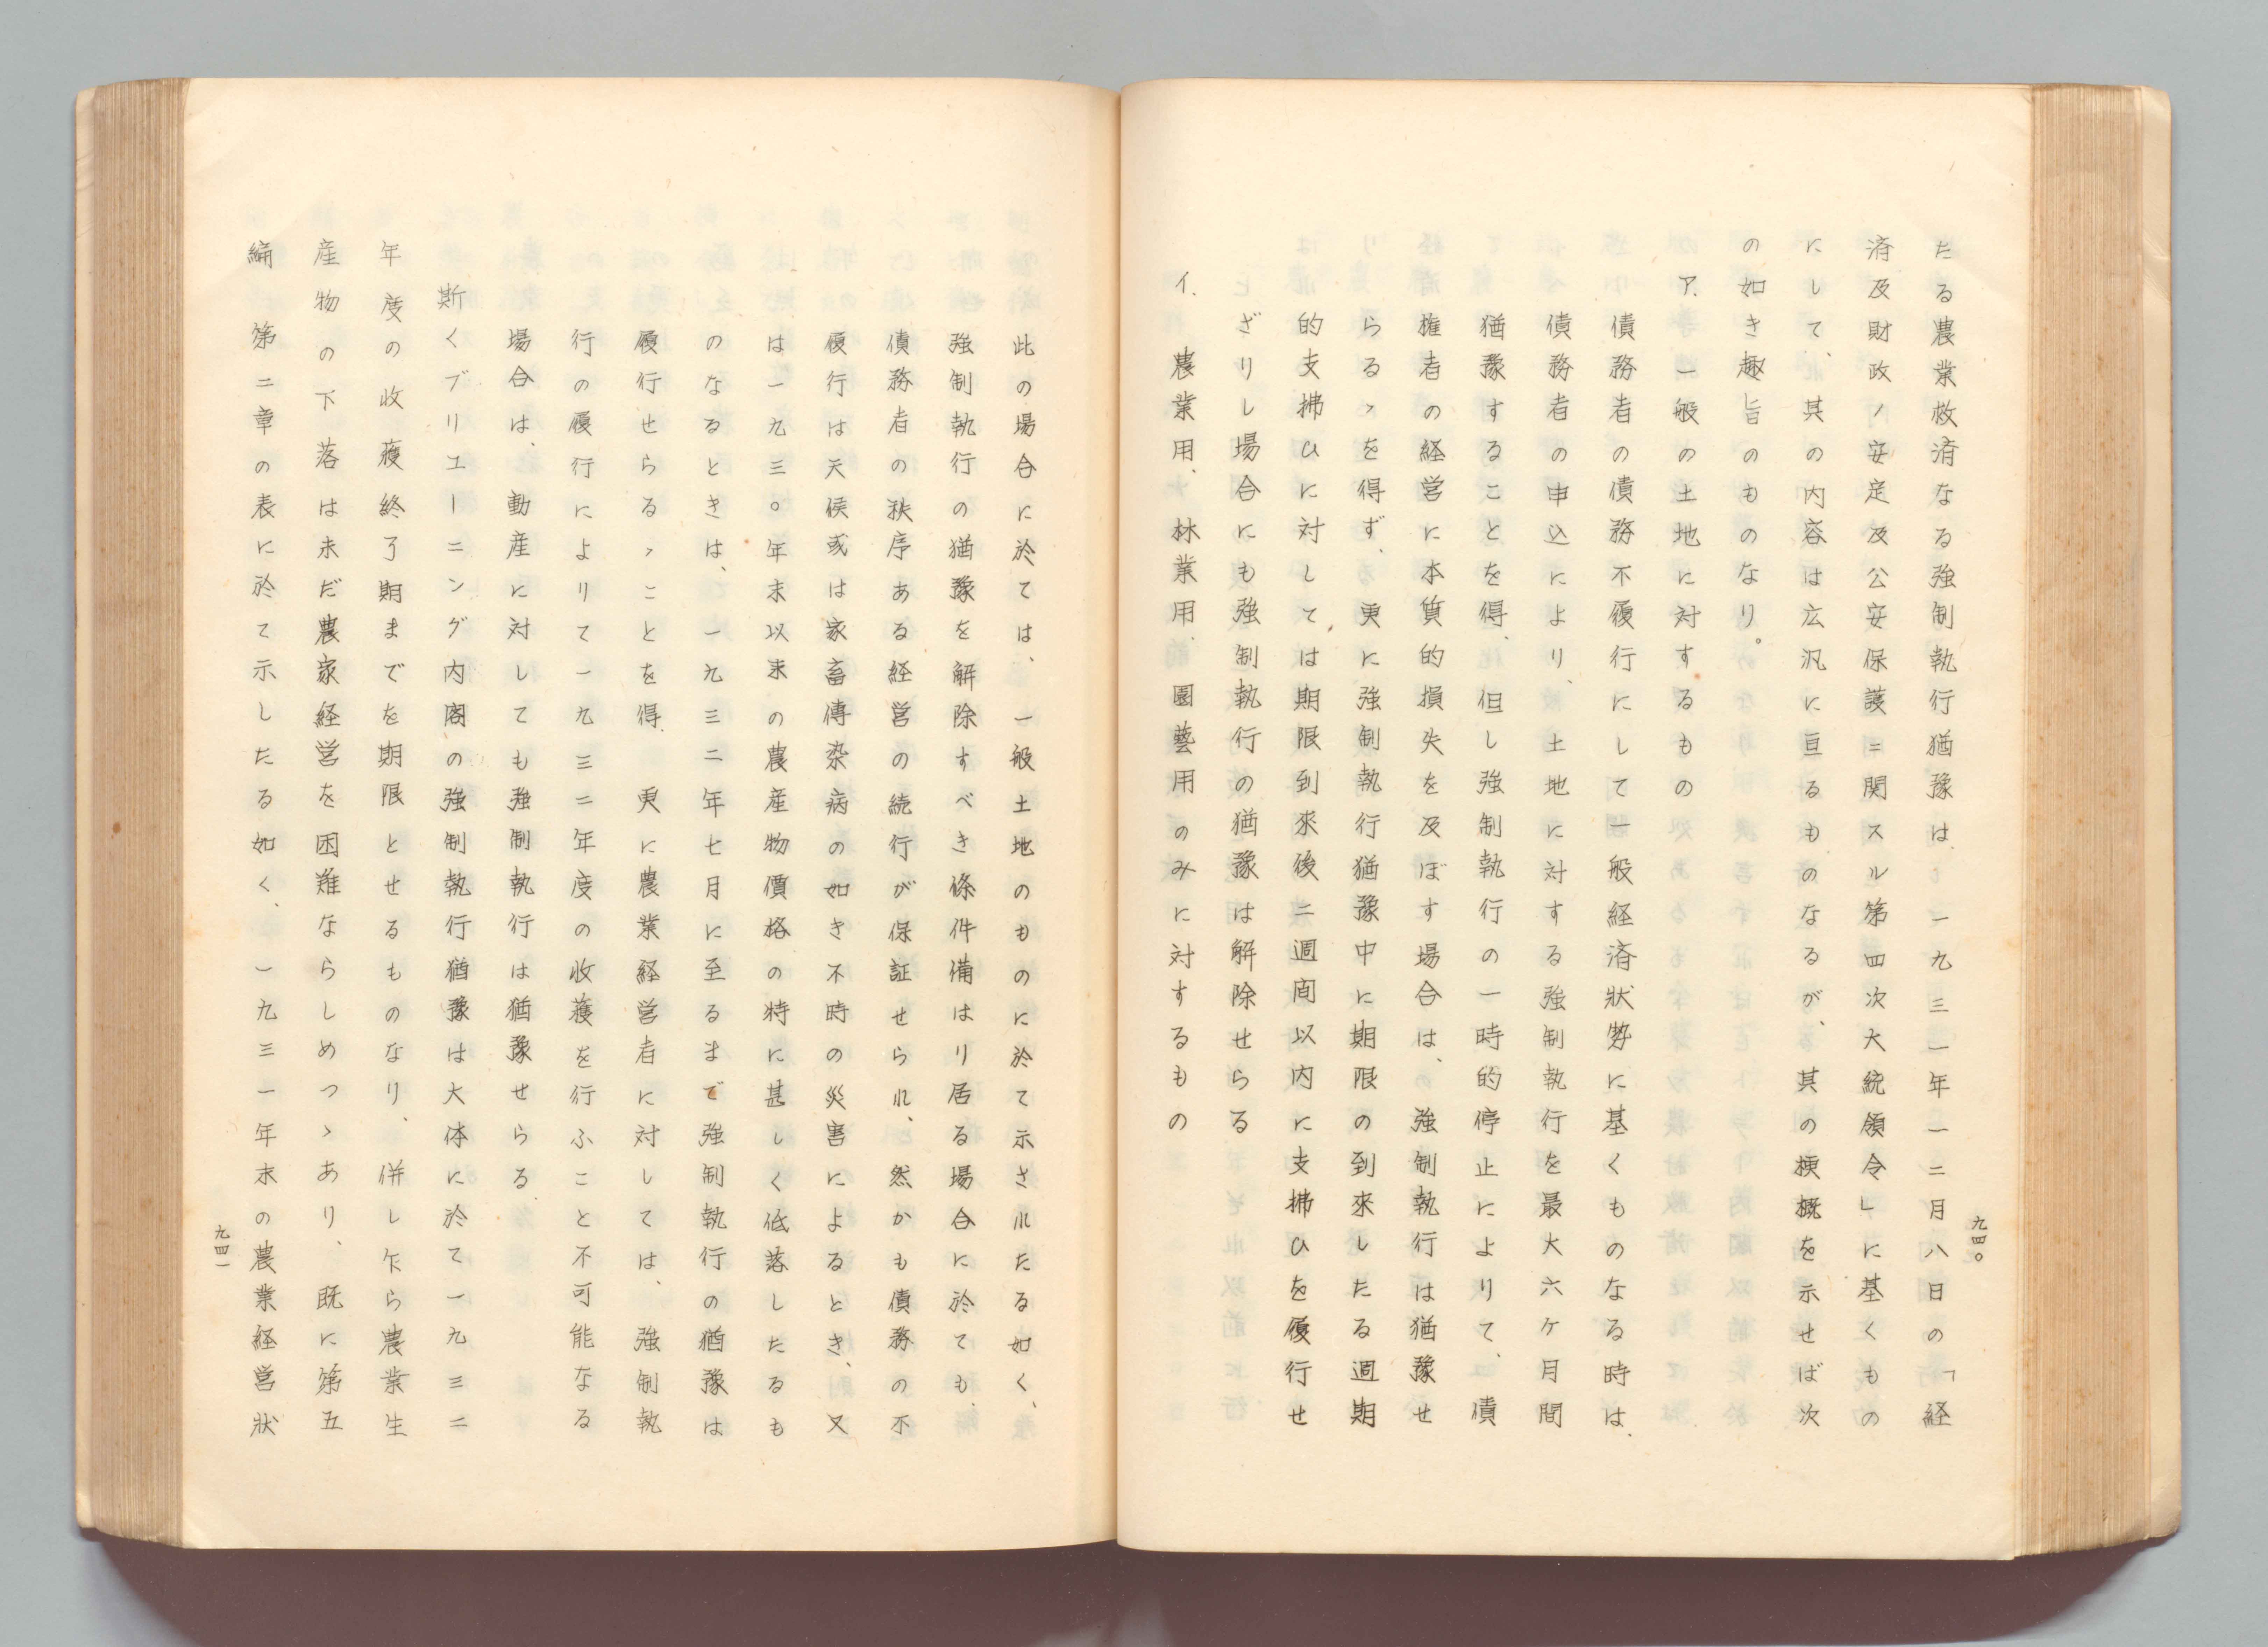 九四〇
たる農業救済なる強制執行猶豫は、一九三一年一二月八日の「経
済及財政ノ安定及公安保護ニ関スル第四次大統領令」に基くもの
にして、其の内容は広汎に亘るものなるが、其の梗概を示せば次
の如き趣旨のものなり。
ア、一般の土地に対するもの
債務者の債務不履行にして一般経済狀勢に基くものなる時は、
債務者の申込により、土地に対する強制執行を最大六ケ月間
猶豫することを得、但し強制執行の一時的停止によりて、債
権者の経営に本質的損失を及ぼす場合は、強制執行は猶豫せ
らるゝを得ず、更に強制執行猶豫中に期限の到來したる週期
的支拂ひに対しては期限到來後二週間以内に支拂ひを履行せ
ざりし場合にも強制執行の猶豫は解除せらる
イ、農業用、林業用、園藝用のみに対するもの
此の場合に於ては、一般土地のものに於て示されたる如く、
強制執行の猶豫を解除すべき條件備はり居る場合に於ても、
債務者の秩序ある経営の続行が保証せられ、然かも債務の不
履行は天候或は家畜傳染病の如き不時の災害によるとき、又
は一九三〇年末以来の農産物價格の特に甚しく低落したるも
のなるときは、一九三二年七月に至るまで強制執行の猶豫は
履行せらるゝことを得、更に農業経営者に対しては、強制執
行の履行によりて一九三二年度の收穫を行ふこと不可能なる
場合は、動産に対しても強制執行は猶豫せらる、
斯くブリユーニング内閣の強制執行猶豫は大体に於て一九三二
年度の收穫終了期までを期限とせるものなり、併し乍ら農業生
産物の下落は未だ農家経営を困難ならしめつゝあり、既に第五
編第二章の表に於て示したる如く、一九三一年末の農業経営狀
九四一